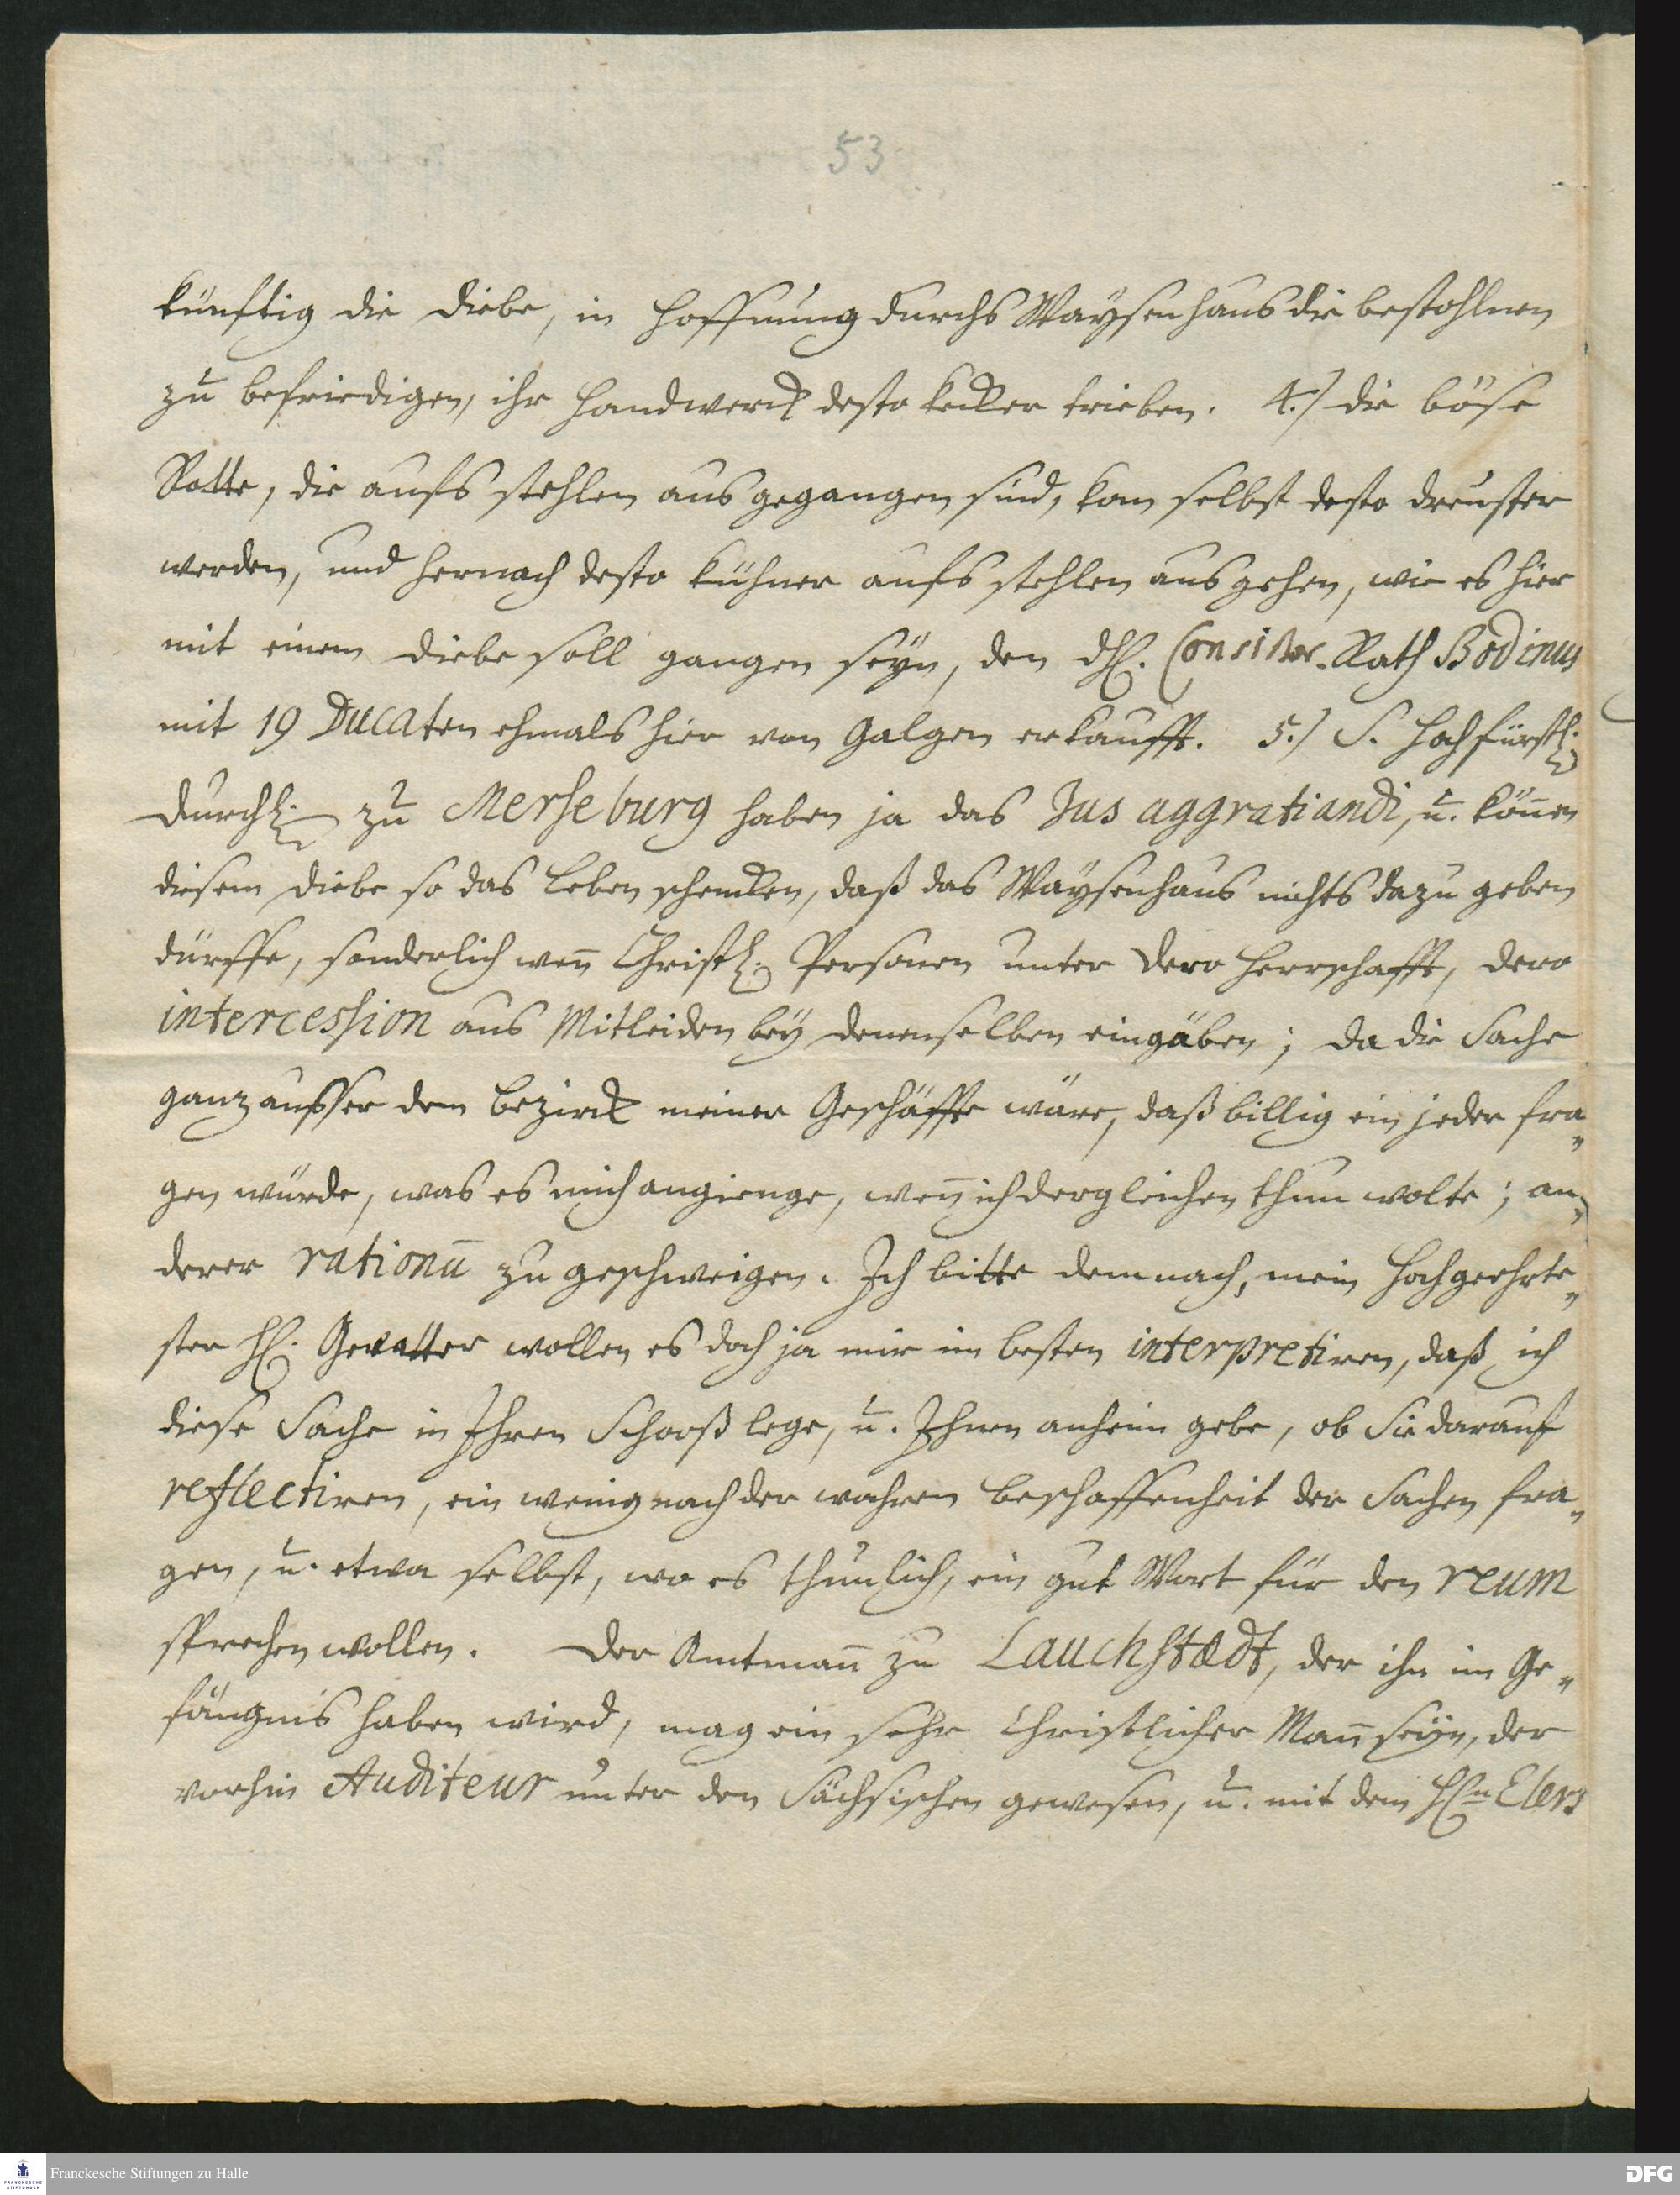 53
künftig die Diebe, in Hoffnung durchs Waysenhaus die bestohlnen
zu befriedigen, ihr Handwerck desto kecker trieben. 4.) die böse
Rotte, die aufs stehlen ausgegangen sind, kan selbst desto dreuster
werden, und hernach desto kühner aufs stehlen ausgehen, wie es hier
mit einem Diebe soll gangen seyn, den H. Consistor. Rath Bodinus
mit 19 Ducaten ehmals hier von Galgen erkaufft. 5.) S. Hochfürstl.
Durchl. zu Merseburg haben ja das Jus aggratiandi, u. kön̄en
diesem Diebe so das Leben schencken, daß das Waysenhaus nichts dazu geben
dürffe, sonderlich wen̄ Christl. Personen unter dero Herrschafft, dero
intercession aus Mitleiden bey denenselben eingäben; da die Sache
ganz ausser dem Bezirck meiner Geschäffte wäre, daß billig ein jeder fra-
gen würde, was es mich angienge, wen̄ ich dergleichen thun wolte; an-
derer rationū zu geschweigen. Ich bitte demnach, mein Hochgeehrte-
ster H. Gevatter wollen es doch ja mir im besten interpretiren, daß ich
diese Sache in Ihren Schooß lege, u. Ihnen anheim gebe, ob Sie darauf
reflectiren, ein wenig nach der wahren Beschaffenheit der Sachen fra-
gen, u. etwa selbst, wo es thunlich, ein gut Wort für den reum
sprechen wollen. Der Amtman̄ zu Lauchstædt, der ihn im Ge-
fängnis haben wird, mag ein sehr Christlicher Man̄ seyn, der
vorhin Auditeur unter den Sächsischen gewesen, u. mit dem Hn Elers
Franckesche Stiftungen zu Halle
FRANCKESCHE STIFTUNGEN
DFG